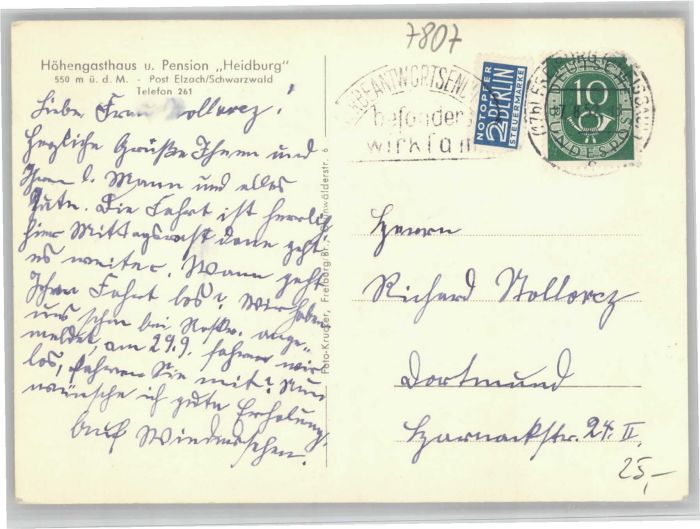 7807
Höhengasthaus u. Pension „Heidburg"
550 m ü. d. M. - Post Elzach/Schwarzwald
Telefon 261
Liebe Frau Stollorcz!
Herzliche Grüße Ihnen und
Ihrem l. Mann und alles
Gute. Die Fahrt ist herrlich
hier Mittagsrast dann geht
es weiter. Wann geht
Ihre Fahrt los? Wir haben
uns schon bei ange-
meldet, am 29.9. fahren wir
los, fahren Sie mit? Nun
wünsche ich gute Erholung.
Auf Wiedersehen.
Foto-Krucker, Freiburg/Br., Günwälderstr. 6
WERBEANTWORTSENDUNG
besonders
wirksam
NOTOPFER
2 BERLIN
STEUERMARKE
FREIBURG (BREISGAU)
c
DEUTSCHE
10
BUNDESPOST
Herrn
Richard Stollorcz
Dortmund
Harnackstr. 24. II.
25,-